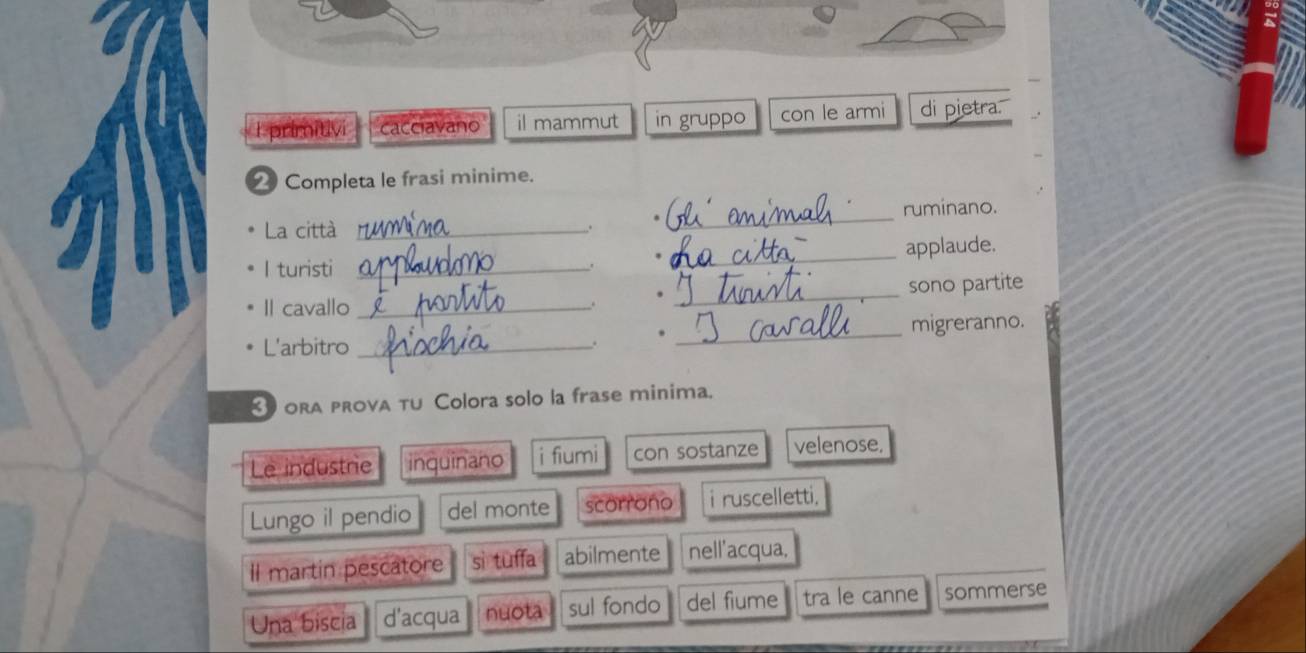 I primitivi cacciavano il mammut in gruppo con le armi di pietra.
2 Completa le frasi minime.
• La città rumina. • Gli animali ruminano.
• I turisti applaudono. • ha città applaude.
• Il cavallo è partito. • I turisti sono partite
• L'arbitro fischia. • I cavalli migreranno.
3 ORA PROVA TU Colora solo la frase minima.
Le industrie inquinano i fiumi con sostanze velenose,
Lungo il pendio del monte scorrono i ruscelletti,
Il martin pescatore si tuffa abilmente nell'acqua,
Una biscia d'acqua nuota sul fondo del fiume tra le canne sommerse
14